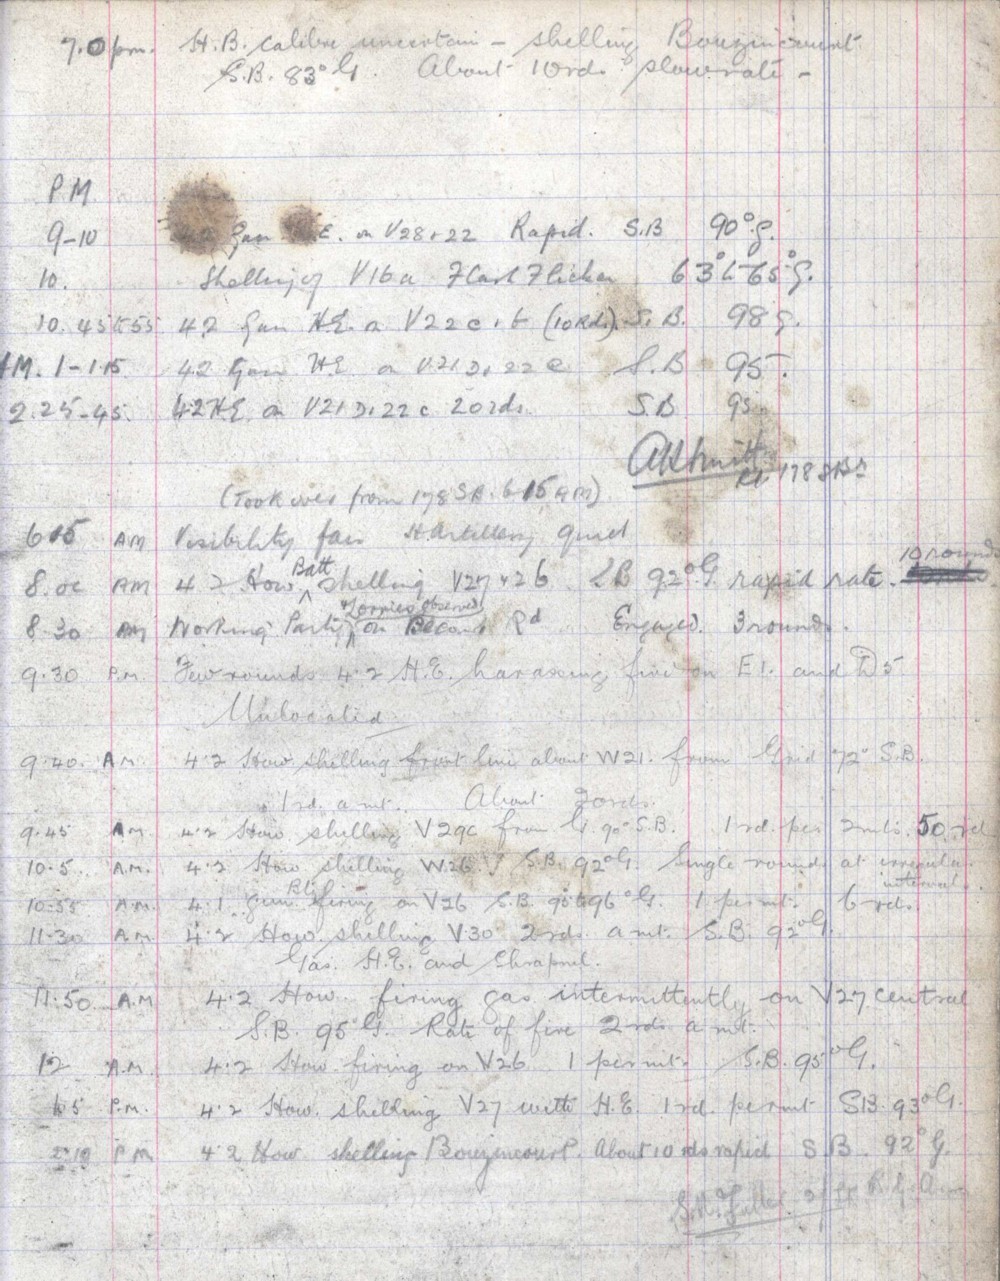 7.0 pm. H.B. calibre uncertain – shelling Bouzincourt
S.B. 83° G. About 10 rds slow rate –
P.M
9-10 Gun H.E. on V28 & 22 Rapid. S.B 90° G.
10. Shelling of V16a Flash Flicker 63° & 65° G.
10.45 to 55 4.2 Gun H.E. on V22 c & b (10 Rds). S.B. 98 G.
AM. 1-1.15 42 Gun H.E on V21D, 22 c S.B 95.
2.25-45. 4.2 H.E. on V21D, 22 c 20 rds. S.B 95
(Took over from 178 S.B. 6.15 AM) 178 SB
6 15 AM Visibility fair H. Artillery quiet
8.00 AM 4.2 How Batt shelling V27 & 26 S.B 92° G. rapid rate. 10 rounds
8.30 AM Working Party & Lorries observed on Becourt Rd Engaged 3 rounds.
9.30 P.M. Few rounds 4.2 H.E. harassing fire on E1. and D5
Unlocated
9.40. A.M. 4.2 How shelling front line about W21. from Grid 72° S.B.
1 rd. a mt. About rds.
9.45 A.M. 4.2 How shelling V29c from G. 90° S.B. 1 rd. per 2 mts. 50 rd
10.5 A.M. 4.2 How shelling W26. S.B. 92° G. Single rounds at irregular
intervals.
10.55 A.M. 4.1 gun Bt. firing on V26 S.B. 95 to 96° G. 1 per mt. 6 rds.
11.30 A.M. 4.2 How shelling V.30 2 rds. a mt. S.B. 92° G.
Gas. H.E. and Shrapnel.
11.50 A.M 4.2 How. firing gas intermittently on V27 central
S.B. 95° G. Rate of fire 2 rds a mt.
12 A.M. 4.2 How. firing on V26 1 per mt. S.B. 95° G.
1.5 P.M. 4.2 How. shelling V27 with H.E. 1 rd. per mt S.B. 93° G.
2.10 P M 4.2 How shelling Bouzincourt. About 10 rds rapid S.B. 92° G.